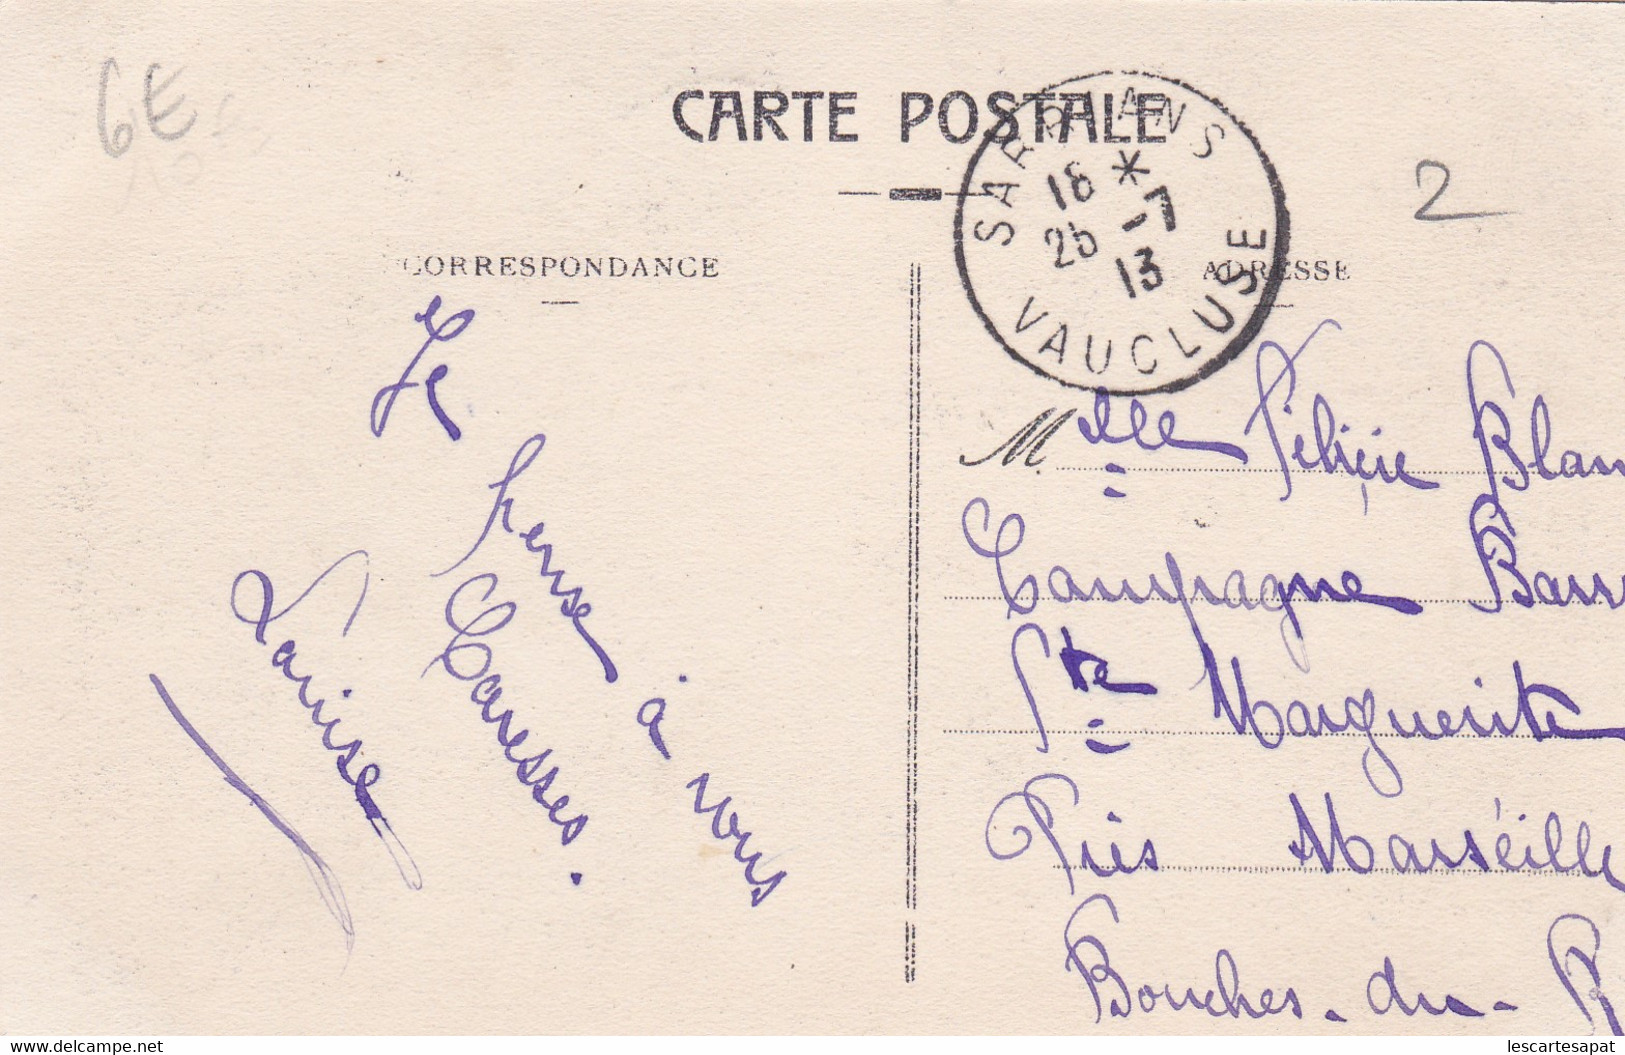 6E
CARTE POSTALE
SARRIANS
18 *
25 -7
13
VAUCLUSE
2
CORRESPONDANCE
ADRESSE
Je
pense à vous
Caresses.
Louise
M.elle Félicie Blan
Campagne Barr
Ste Marguerite
Près Marséille
Bouches-du-R
delcampe.net
lescartesapat